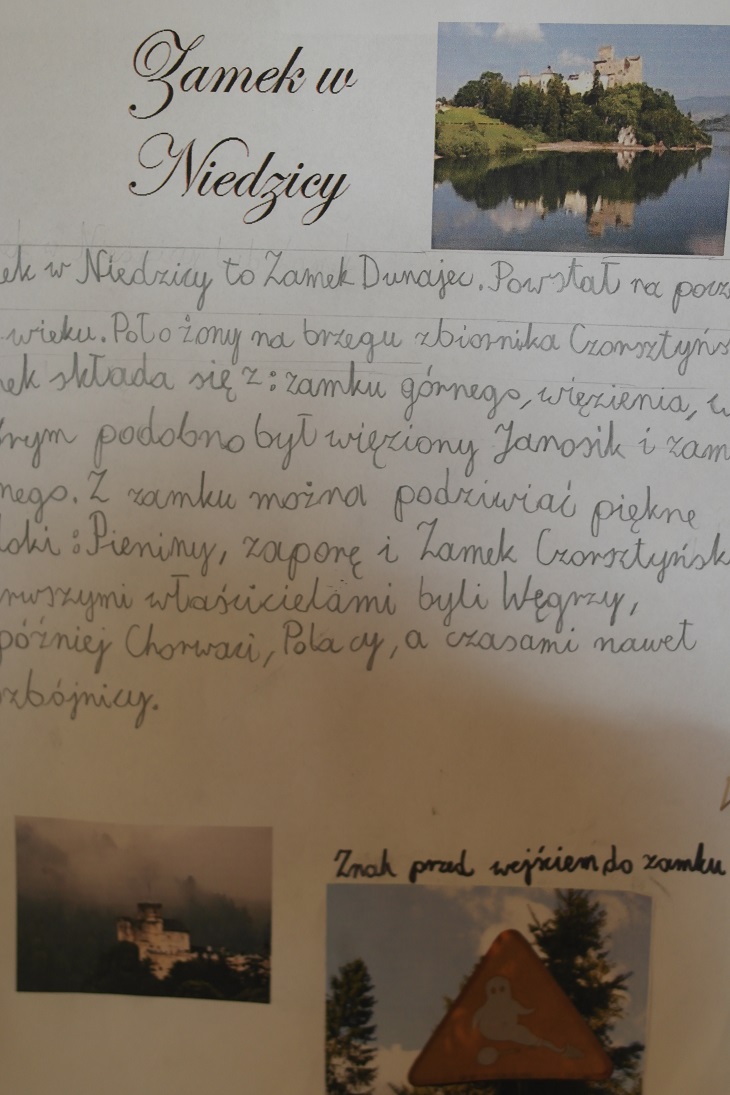 Zamek w
Niedzicy
ek w Niedzicy to Zamek Dunajec. Powstał na pocz
wieku. Położony na brzegu zbiornika Czorsztyńs
ek składa się z: zamku górnego, więzienia, w
rym podobno był więziony Janosik i zam
nego. Z zamku można podziwiać piękne
oki: Pieniny, zaporę i Zamek Czorsztyńsk
rwszymi właścicielami byli Węgrzy,
później Chorwaci, Polacy, a czasami nawet
zbójnicy.
Znak przed wejściem do zamku